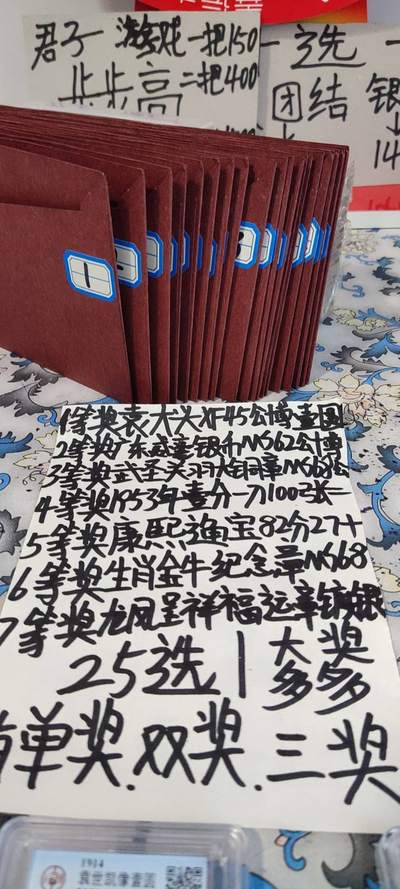 君子一游戏一把150
步步高二把400
一选一
团结
银
14
1
1等奖袁大头XF45公博壹圆
2等奖广东咸丰银币MS62公博
3等奖武圣关羽大铜章MS68公
4等奖1953年壹分一刀100张二
5等奖康熙通宝82分27十
6等奖生肖金牛纪念章MS68
7等奖龙凤呈祥福运章铜银
25选1大奖多多
单奖.双奖.三奖
1914
袁世凯像壹圆